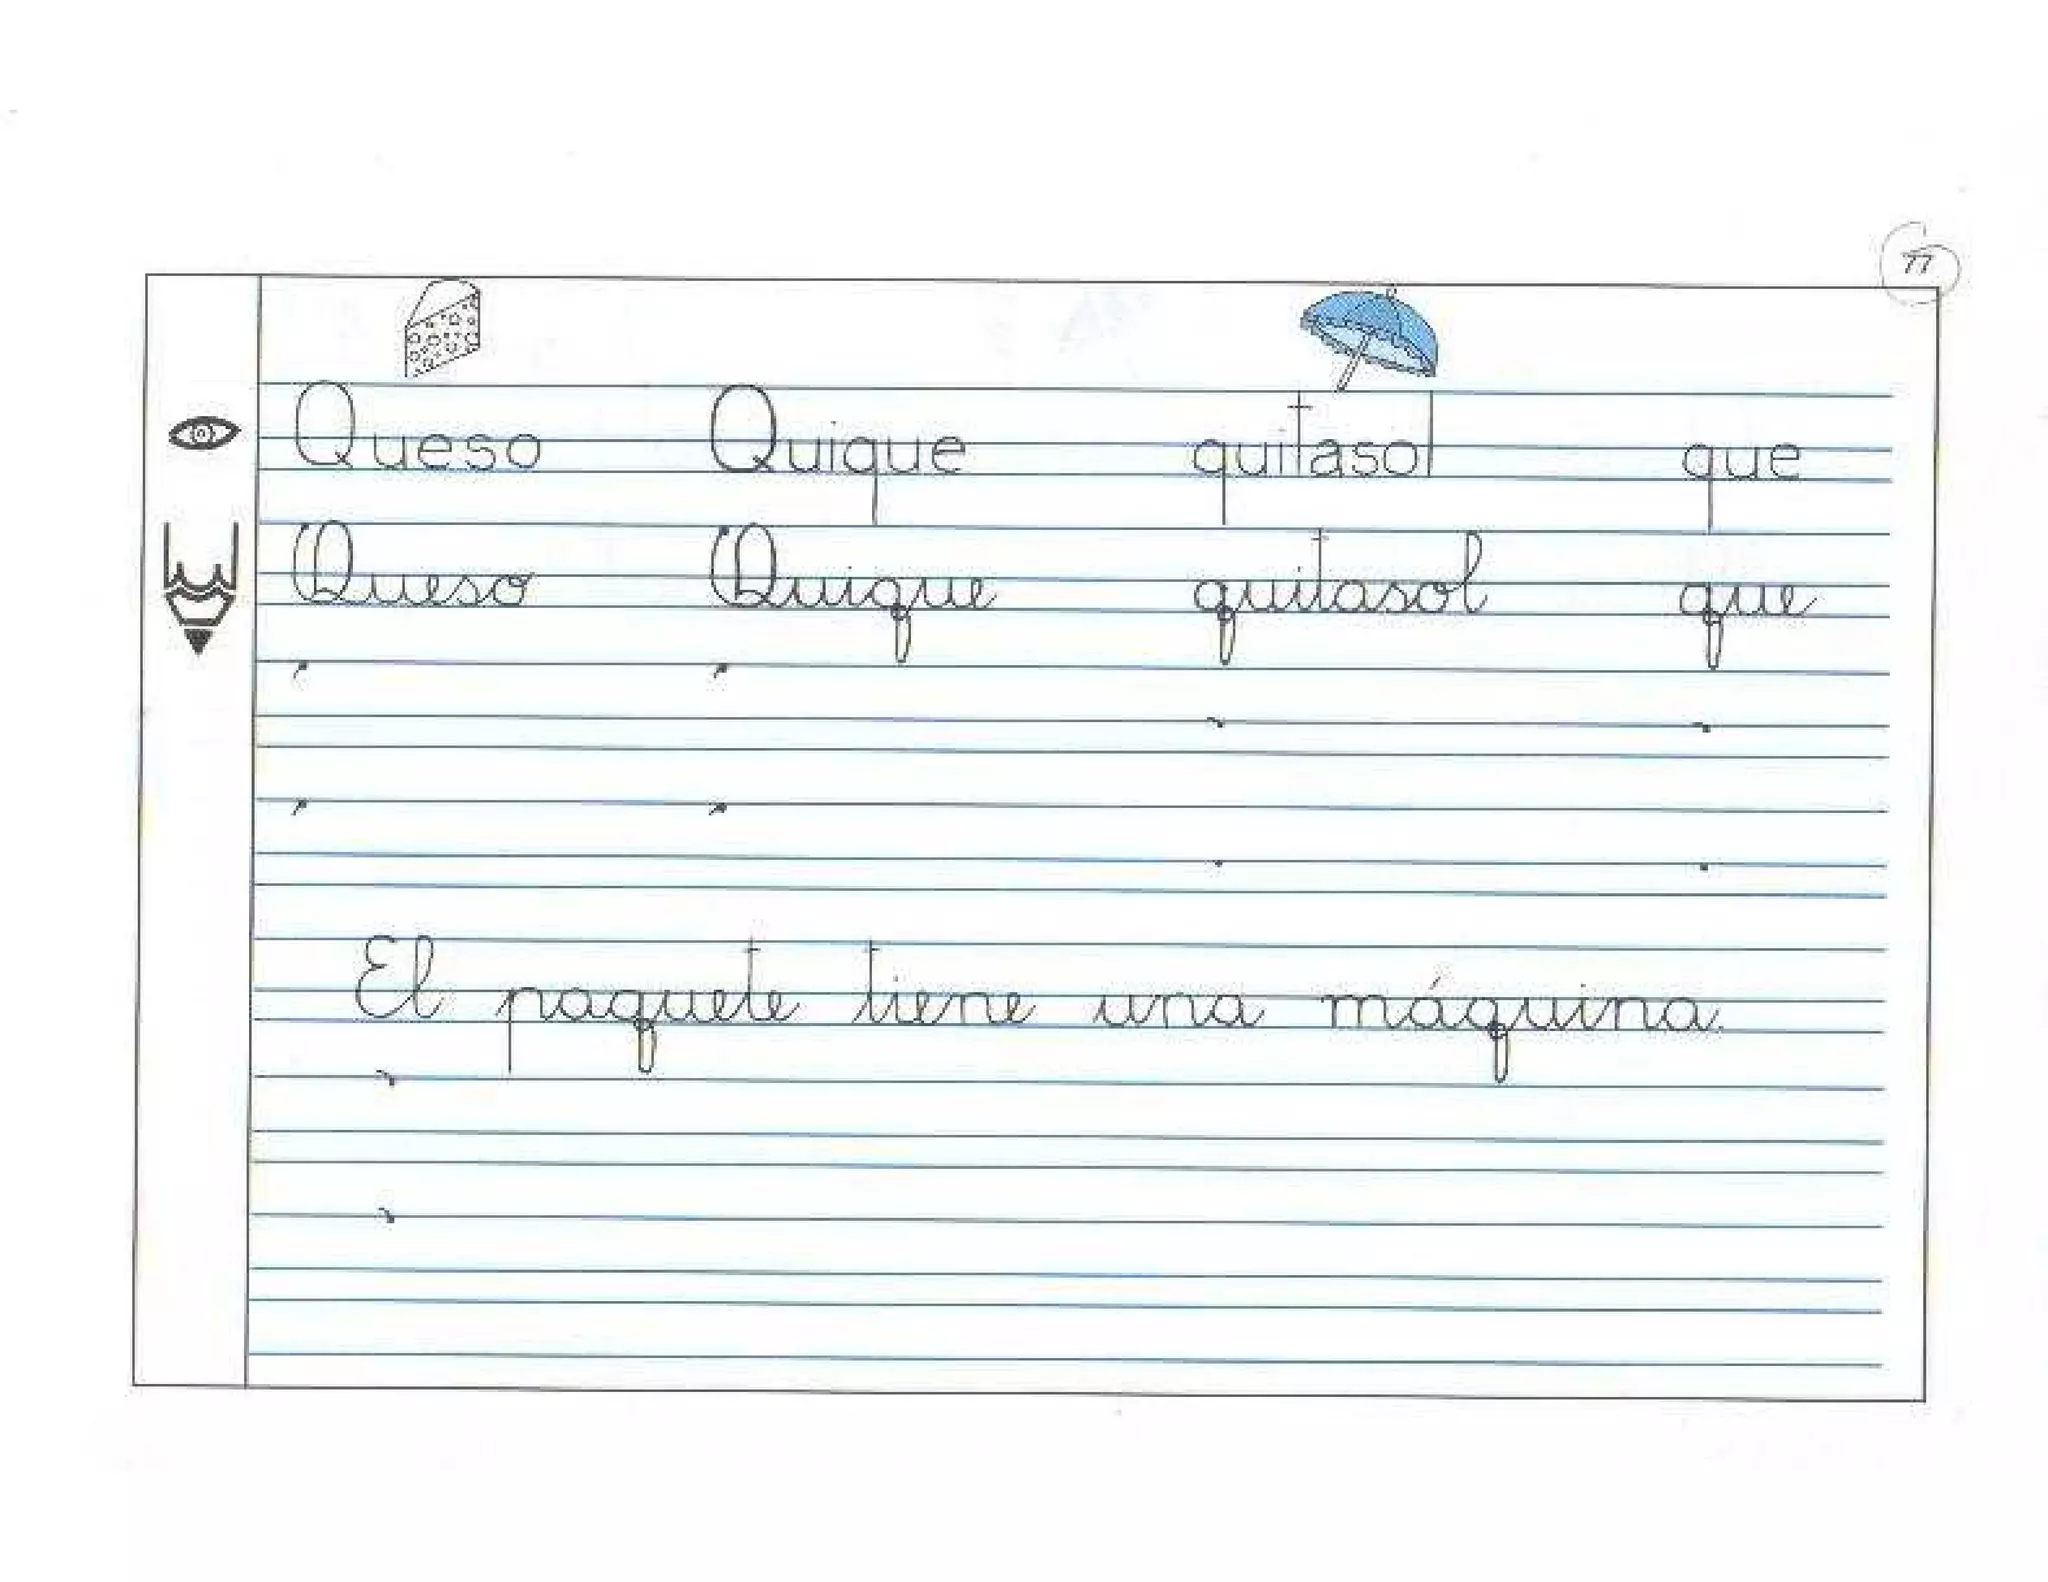 77
Queso Quique quitasol que
Queso Quique quitasol que
El paquete tiene una máquina.